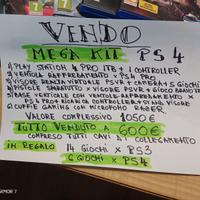 VENDO
MEGA KIT PS4
1) PLAY STATION 4 PRO 1TB + 1 CONTROLLER
2) VENTOLA RAFFREDDAMENTO x PS4 PRO
3) VISORE REALTA' VIRTUALE VSR + CAMERA + 5 GIOCHI
4) PISTOLE SPARATUTTO x VISORE PSVR + GIOCO
5) BASE VERTICALE CON VENTOLA RAFFREDDAMENTO x
PS4 PRO + RICARICA CONTROLLER + STAND VISORE
6) CUFFIE GAMING CON MICROFONO RAZER
VALORE COMPLESSIVO 1050 €
TUTTO VENDUTO A 600 €
COMPRESO TUTTI CAVI DI COLLEGAMENTO
IN REGALO 14 GIOCHI x PS3
6 GIOCHI x PS4